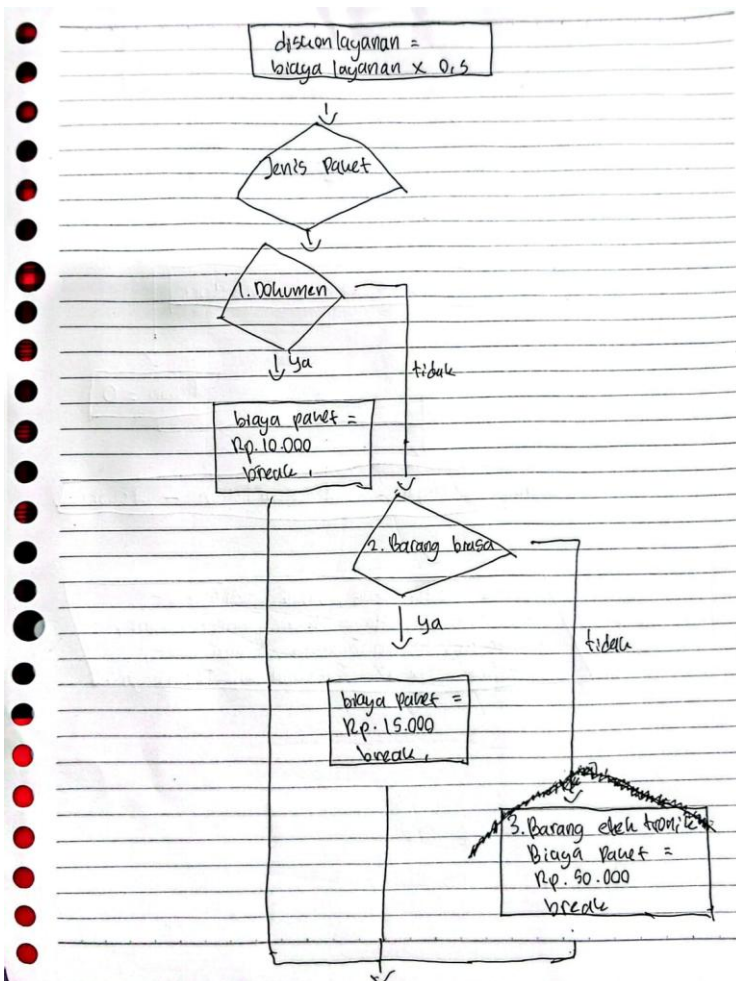 diskon layanan =
biaya layanan x 0,5
Jenis Paket
1. Dokumen
ya
tidak
biaya paket =
Rp. 10.000
break,
2. Barang biasa
ya
tidak
biaya paket =
Rp. 15.000
break,
3. Barang elektronik
Biaya Paket =
Rp. 50.000
break